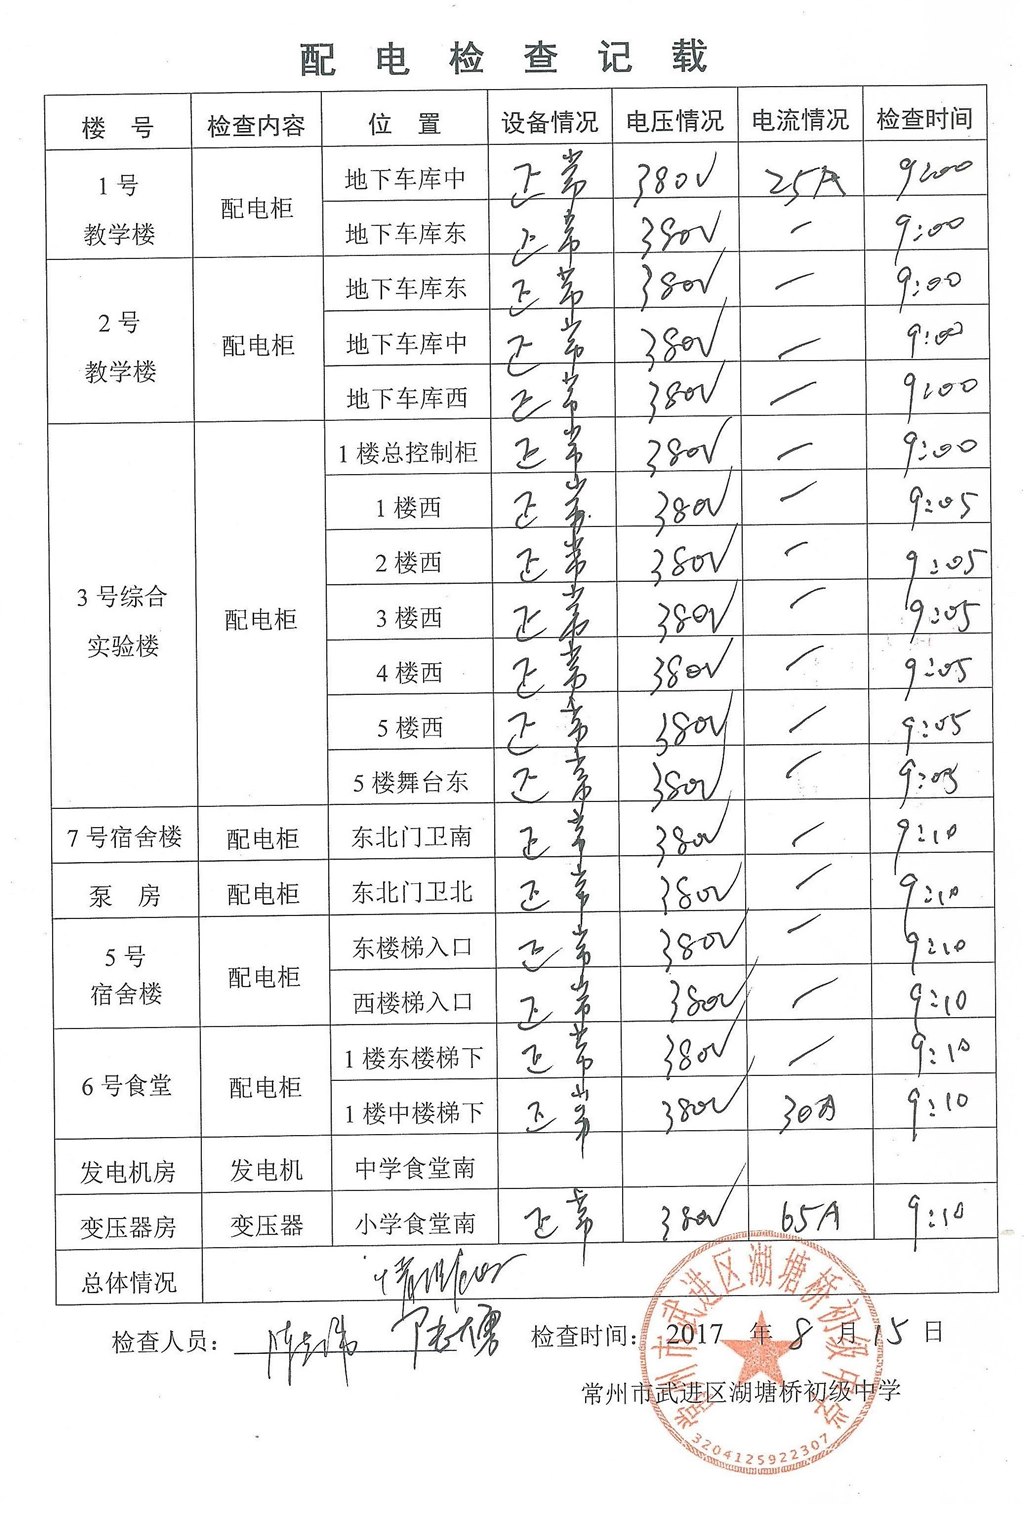 配电检查记载
楼 号 检查内容 位 置 设备情况 电压情况 电流情况 检查时间
1号
教学楼 配电柜 地下车库中 正常 380V 25A 9:00
地下车库东 正常 380V — 9:00
2号
教学楼 配电柜 地下车库东 正常 380V — 9:00
地下车库中 正常 380V — 9:00
地下车库西 正常 380V — 9:00
3号综合
实验楼 配电柜 1楼总控制柜 正常 380V — 9:00
1楼西 正常 380V — 9:05
2楼西 正常 380V — 9:05
3楼西 正常 380V — 9:05
4楼西 正常 380V — 9:05
5楼西 正常 380V — 9:05
5楼舞台东 正常 380V — 9:05
7号宿舍楼 配电柜 东北门卫南 正常 380V — 9:10
泵 房 配电柜 东北门卫北 正常 380V — 9:10
5号
宿舍楼 配电柜 东楼梯入口 正常 380V — 9:10
西楼梯入口 正常 380V — 9:10
6号食堂 配电柜 1楼东楼梯下 正常 380V — 9:10
1楼中楼梯下 正常 380V 30A 9:10
发电机房 发电机 中学食堂南
变压器房 变压器 小学食堂南 正常 380V 65A 9:10
总体情况 情况良好
检查人员： 检查时间： 2017 年 8 月 15 日
常州市武进区湖塘桥初级中学
常州市武进区湖塘桥初级中学
3204125922307